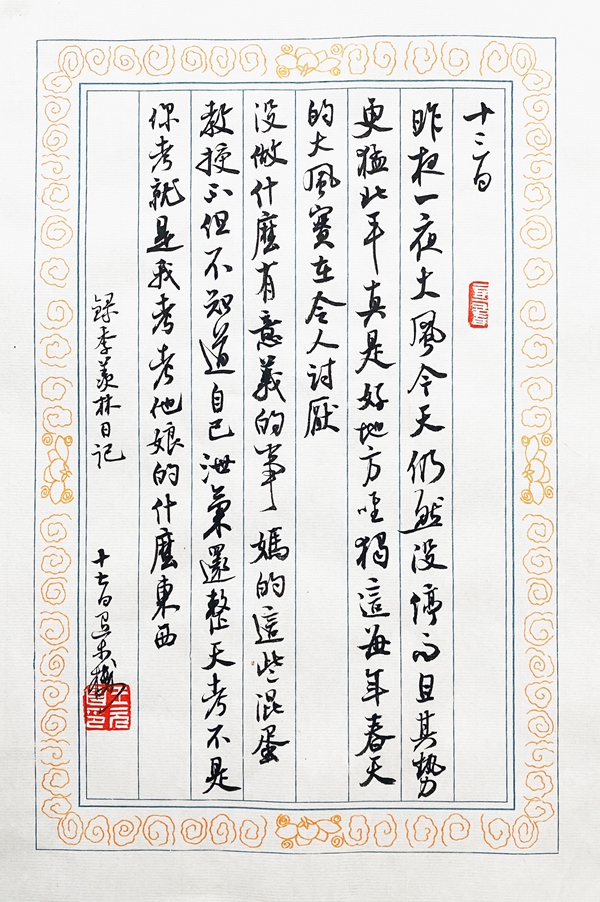 十二日
昨夜一夜大風今天仍然没停而且其勢
更猛北平真是好地方唯獨這每年春天
的大風實在令人討厭
没做什麼有意義的事 媽的這些混蛋
教授不但不知道自己泄氣還整天考不是
你考就是我考考他娘的什麼東西
録季羡林日记
十七日